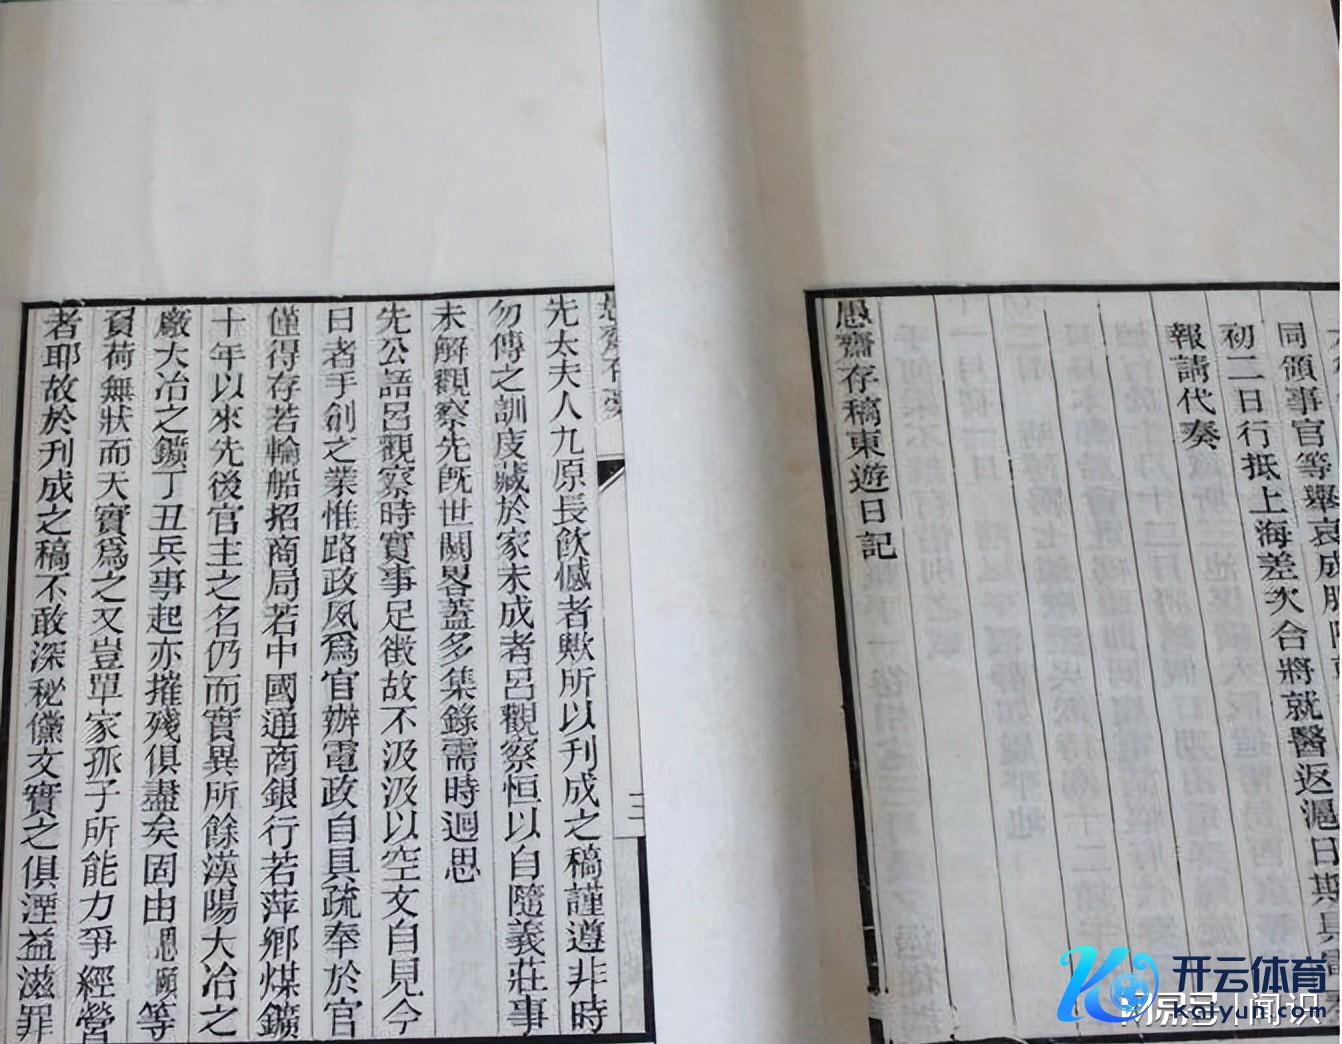 同領事官等舉哀成服
初二日行抵上海差次合將就醫返滬日期具電
報請代奏
愚齋存稿東遊日記
先太夫人九原長飲憾者歟所以刊成之稿謹遵非時
勿傳之訓庋藏於家未成者呂觀察恒以自隨義莊事
未解觀察先旣世闕畧蓋多集錄需時迴思
先公語呂觀察時實事足徵故不汲汲以空文自見今
日者手創之業惟路政夙爲官辦電政自具疏奉於官
僅得存若輪船招商局若中國通商銀行若萍鄉煤鑛
十年以來先後官主之名仍而實異所餘漢陽大冶之
廠大冶之鑛丁丑兵事起亦摧殘俱盡矣固由恩頤等
負荷無狀而天實爲之又豈單家孤子所能力爭經營
者耶故於刊成之稿不敢深秘儻文實之俱湮益滋罪
开云体育
kaiyun.com